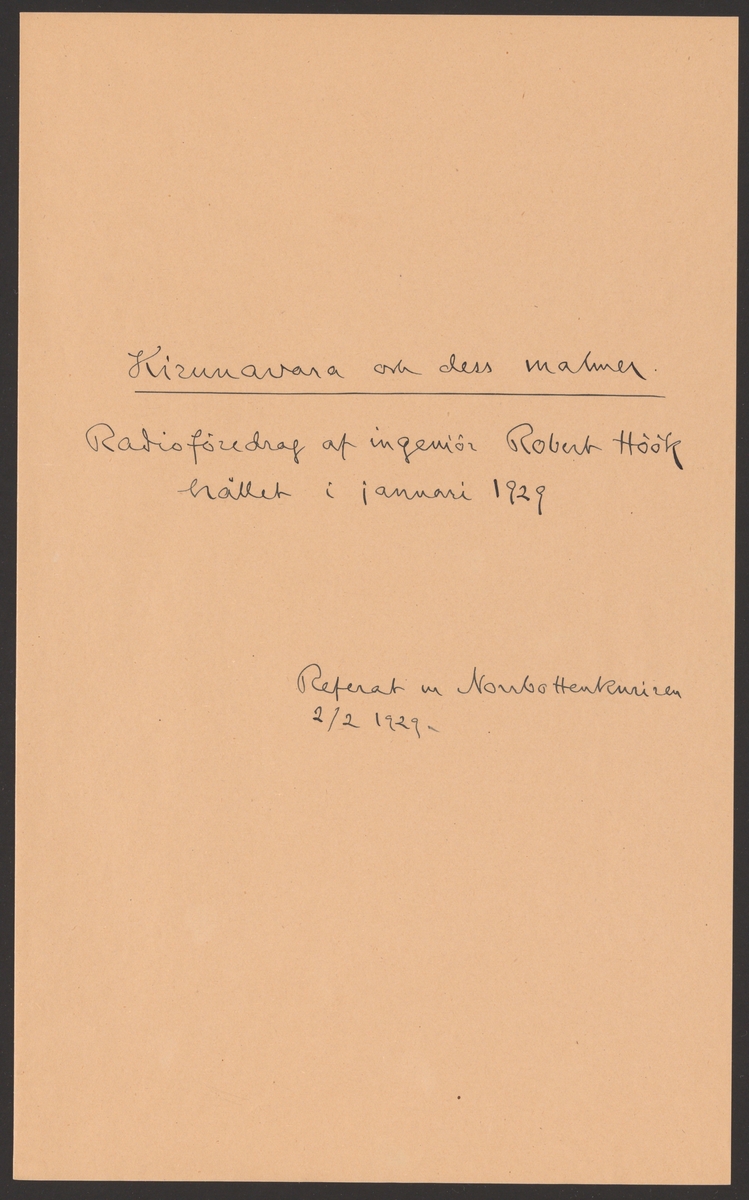 Kirunavara och dess malmer.
Radioföredrag af ingeniör Robert Höök
hållet i januari 1929
Referat ur Norrbottenkuriren
2/2 1929.